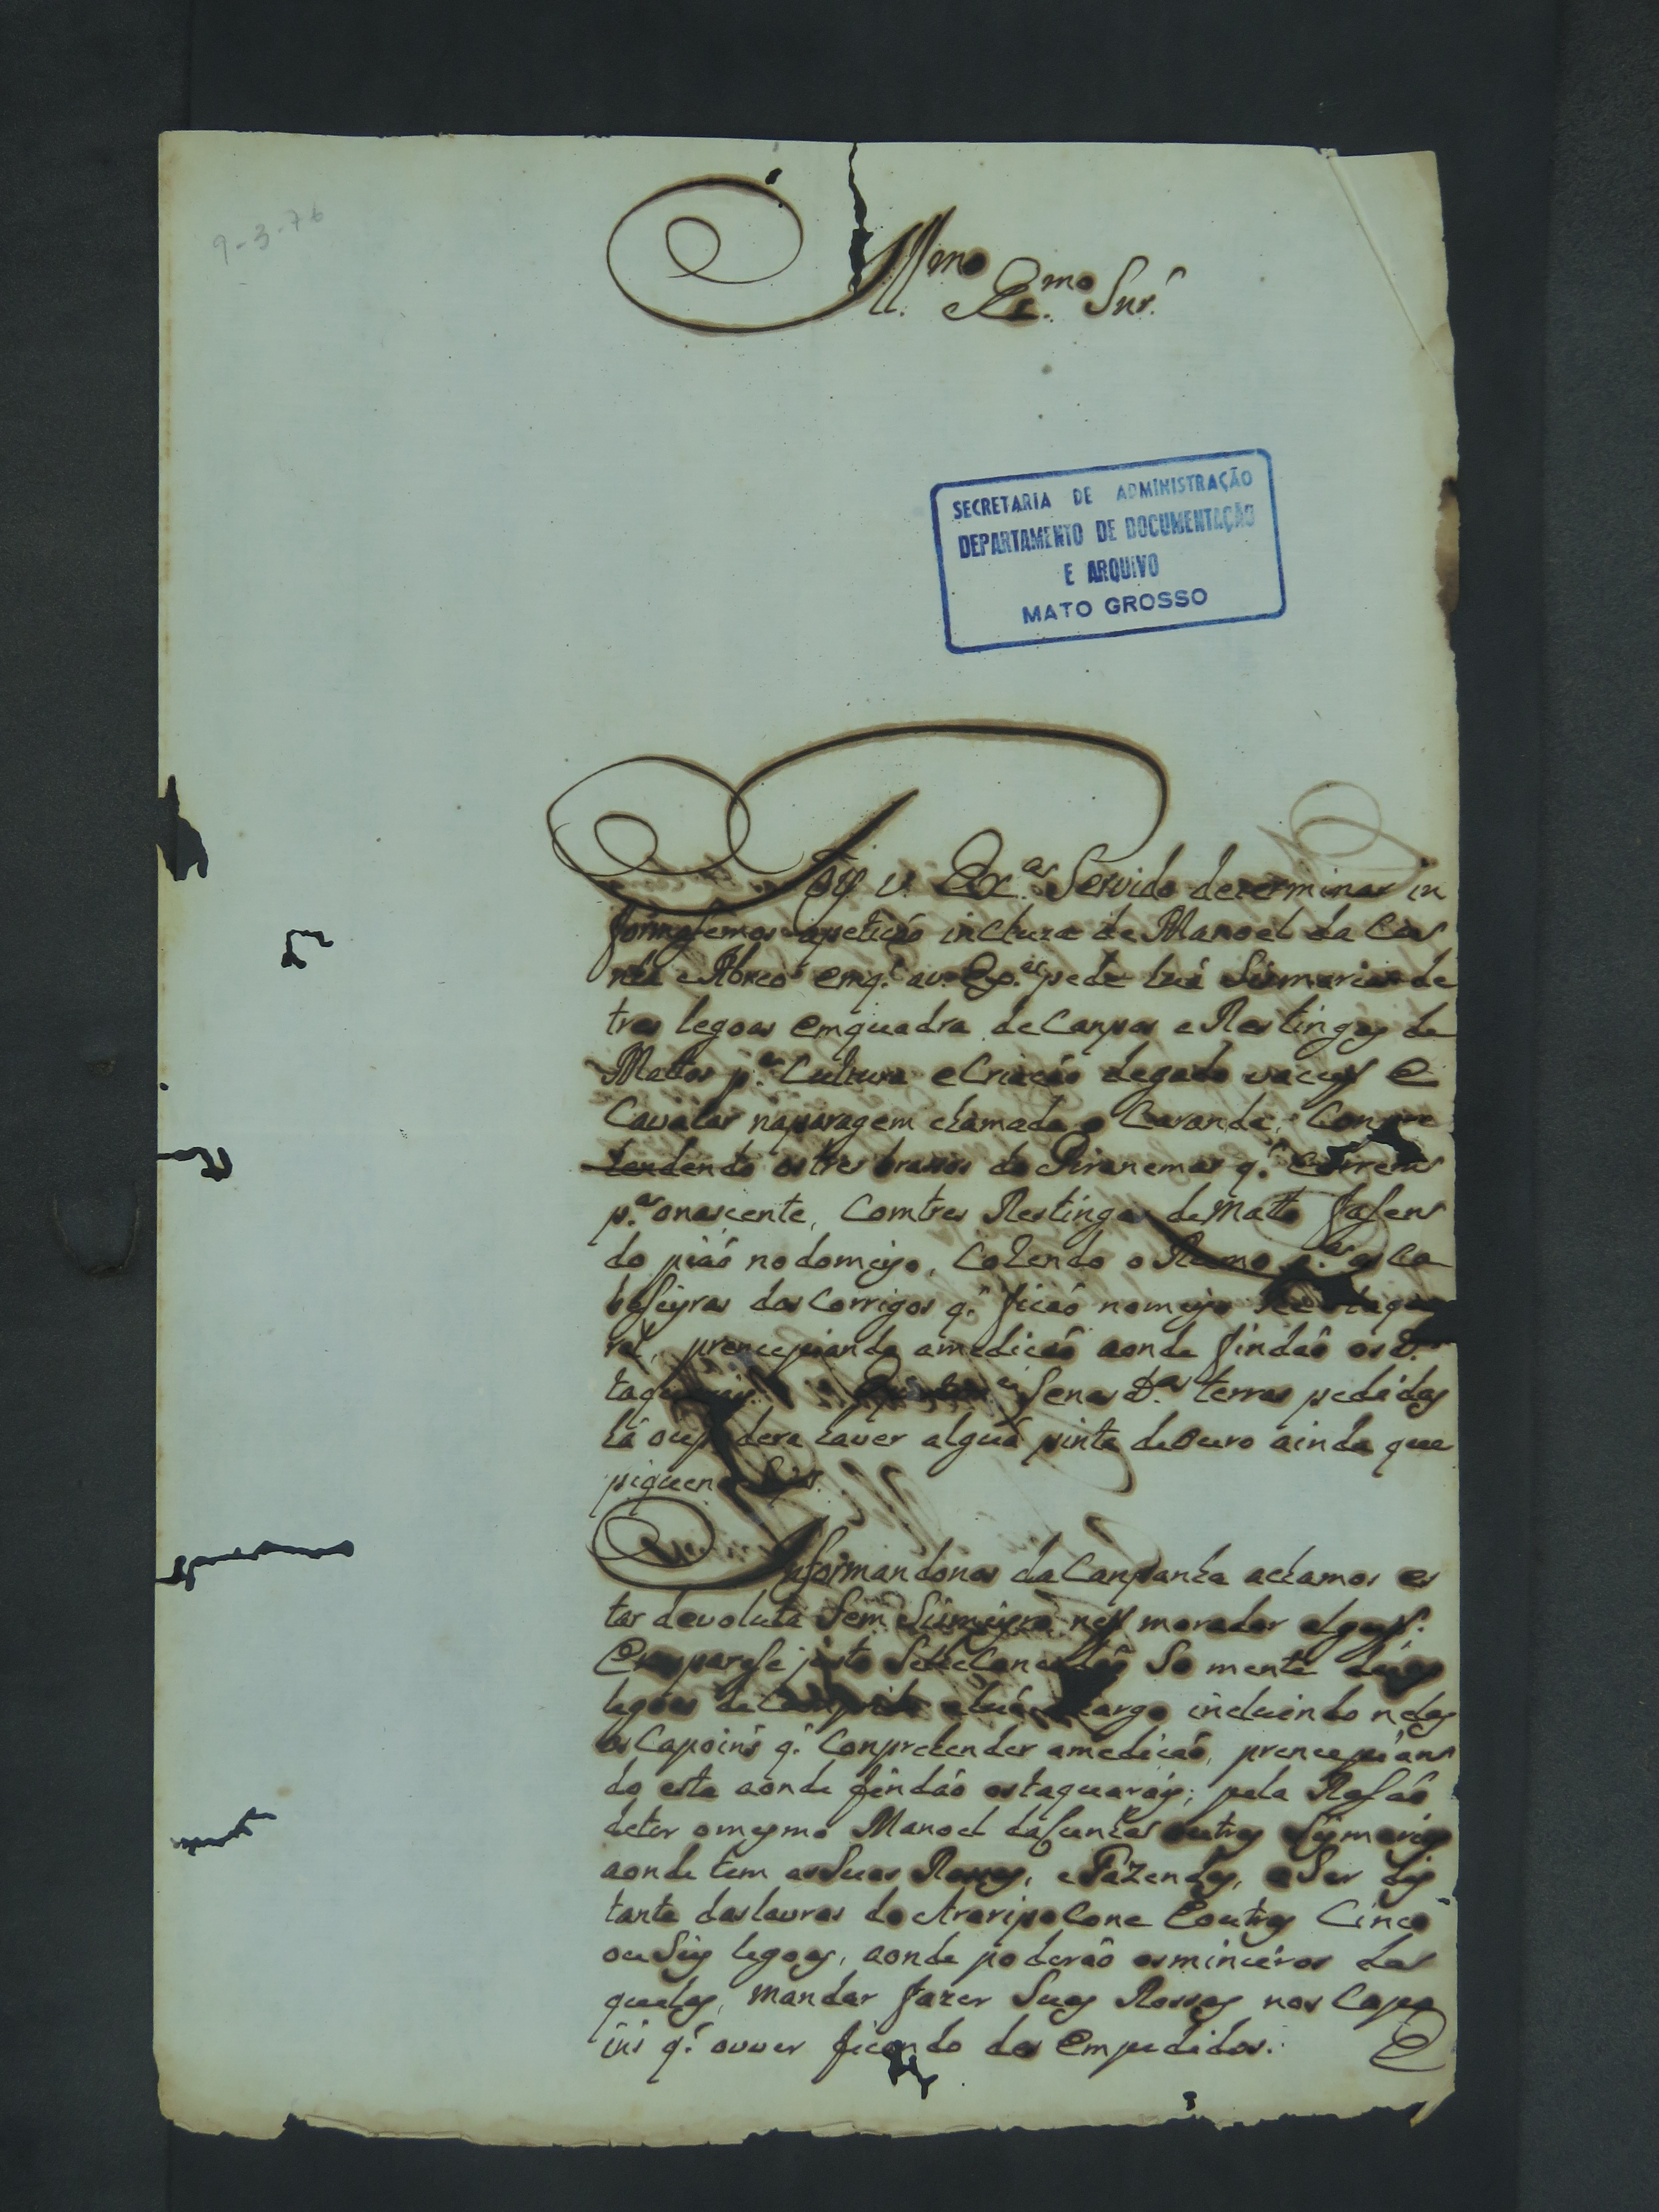 9-3-76
Ill.mo Ex.mo Snr.
SECRETARIA DE ADMINISTRAÇÃO
DEPARTAMENTO DE DOCUMENTAÇÃO
E ARQUIVO
MATO GROSSO
Foy V. Ex.a Servido determinar in
formasemos apetiçaõ incluza de Manoel da Cu
nha e Abreo emq.' av. Ex.a pede huá Sismaria de
tres legoas emquadra de Canpos e Restingas de
Mattos p.a Cultura e Criaçaõ degado vacuy e
Cavalar naparagem chamada o Carandá, Conpre
hendendo os tres braços do Piranemas q.' Correm
p.a onascente, Comtres Restingas de Matto fasen
do piaõ no domeyo, Cohendo o Rumo p.a as Ca
beseyras dos Corrigos q.' ficaõ nomeyo
ral, prencepianda amediçaõ aonde findaõ os d.os
Senas d.as terras pedidas
há ou dera haver alguá pinta de ouro ainda que
piquen
Informandonos da Canpanha achamos es
tar devoluta Sem Sismeyro nem morador algum.
Enosparese justo So mente
legoas de Largo incluindo nelas
os Capoins q.' Conprehender amediçaõ, prencepian
do esta aonde findaõ ostaquarays; pela Resaõ
deter omesmo Manoel daCunha outras Sismarias
aonde tem as Suas Rossas, e Fazendas, e Ser dis
tante das lavras do Araripocone Eoutras Cinco
ou Seis legoas, aonde poderaõ os mineiros da
quelas, mandar fazer Suas Rossas nos Capo
ins q.' ouver ficando des Empedidos.
E